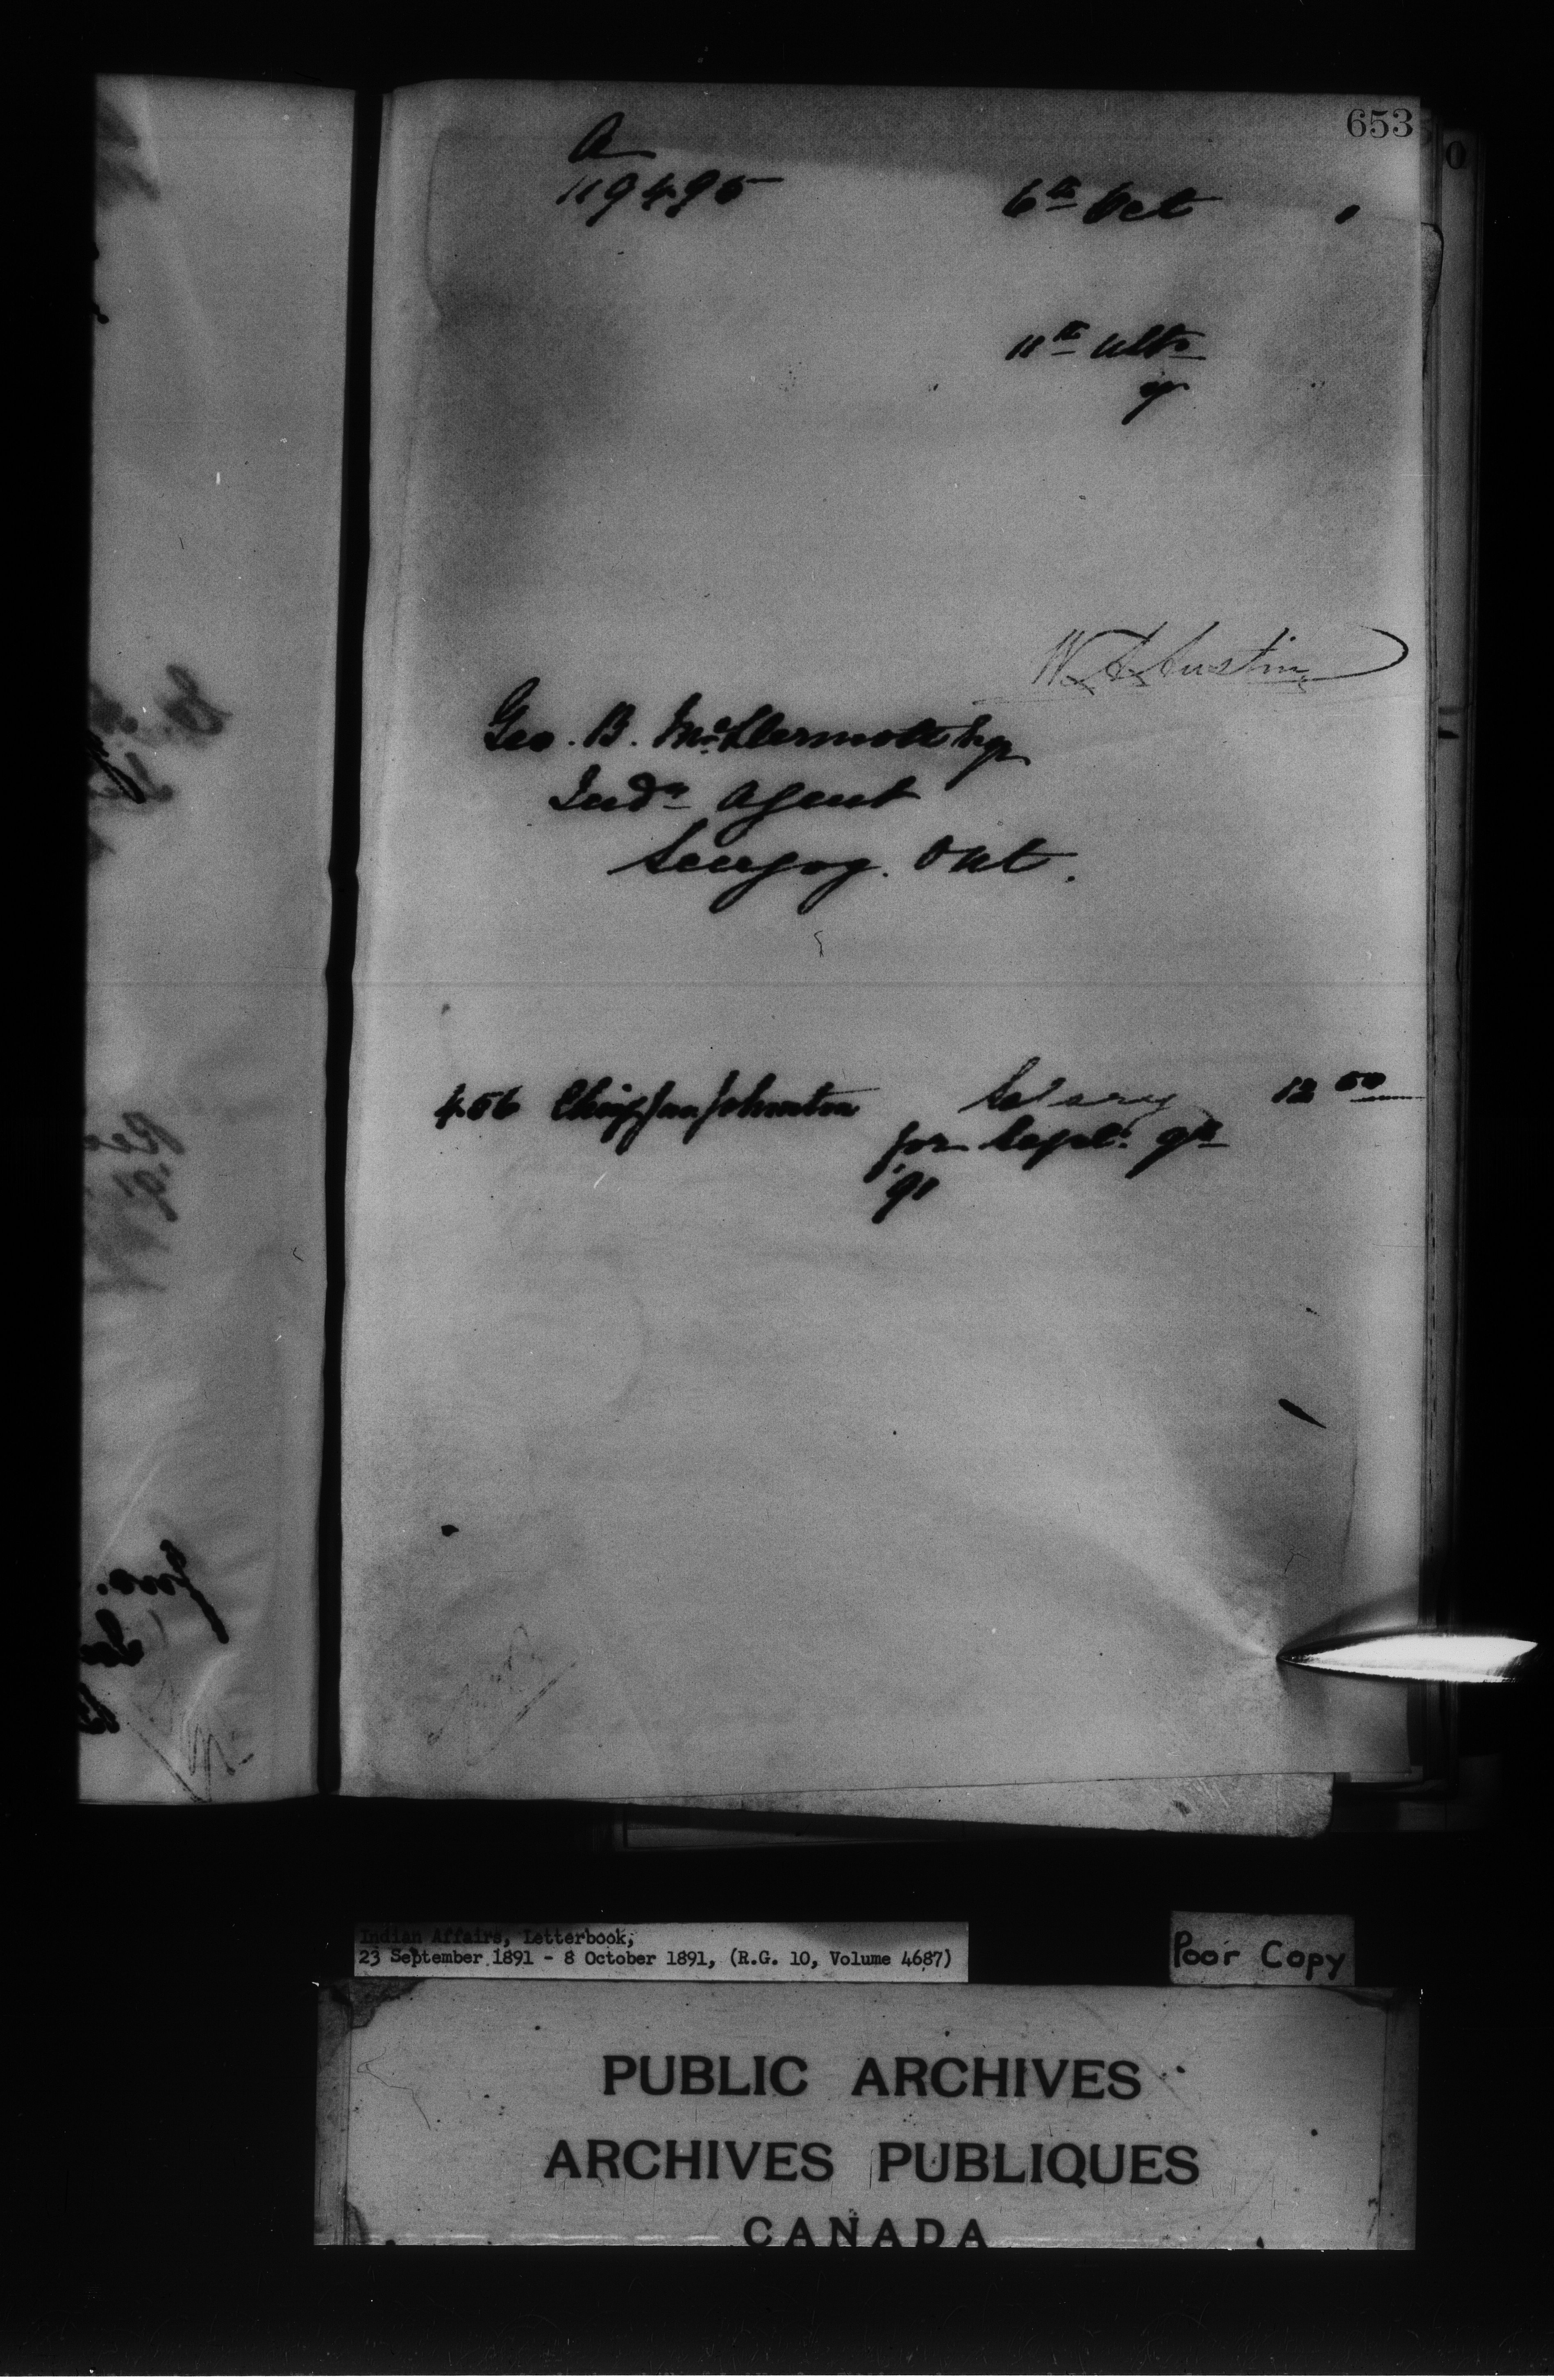 653
A
119495
6th Oct 1
11th ulto
W. A. Austin
Geo. B. McDermott Esq
Indn Agent
Scugog. Ont.
456 Chief Jno Johnston Salary 12 50
for Sept. qr
'91
Indian Affairs, Letterbook,
23 September 1891 - 8 October 1891, (R.G. 10, Volume 4687)
Poor Copy
PUBLIC ARCHIVES
ARCHIVES PUBLIQUES
CANADA